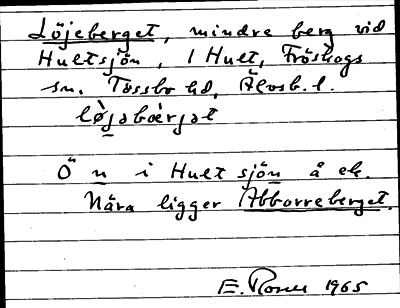 Löjeberget, mindre berg vid
Hultsjön, i Hult, Fröskogs
sn. Tössbo hd, Älvsb. l.
lø̀jəbær̀jət
Ö n i Hult sjön å ek.
Nära ligger Abborreberget.
E. Rosen 1965